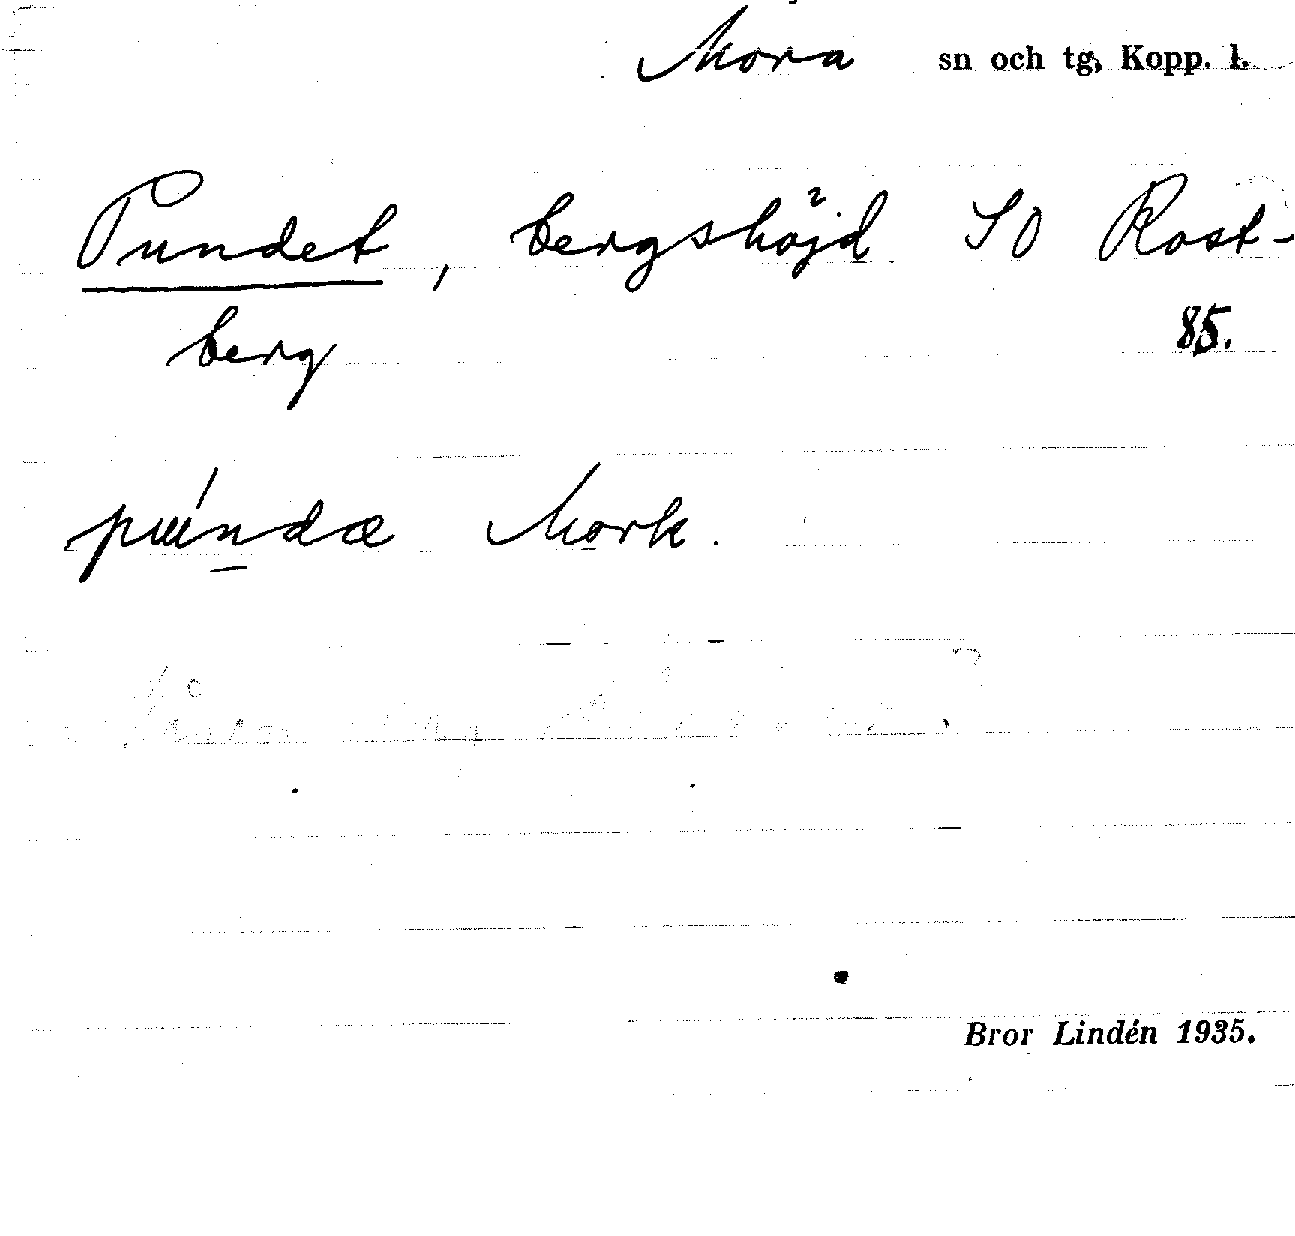 Mora sn och tg, Kopp. l.
Pundet, bergshöjd SO Rost-
berg 85.
púndæ Mork.
Bror Lindén 1935.